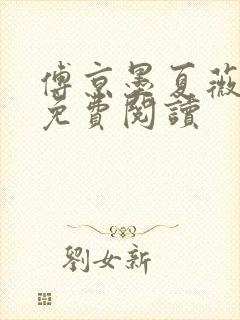 傅京墨夏薇
免費閱讀
劉女新